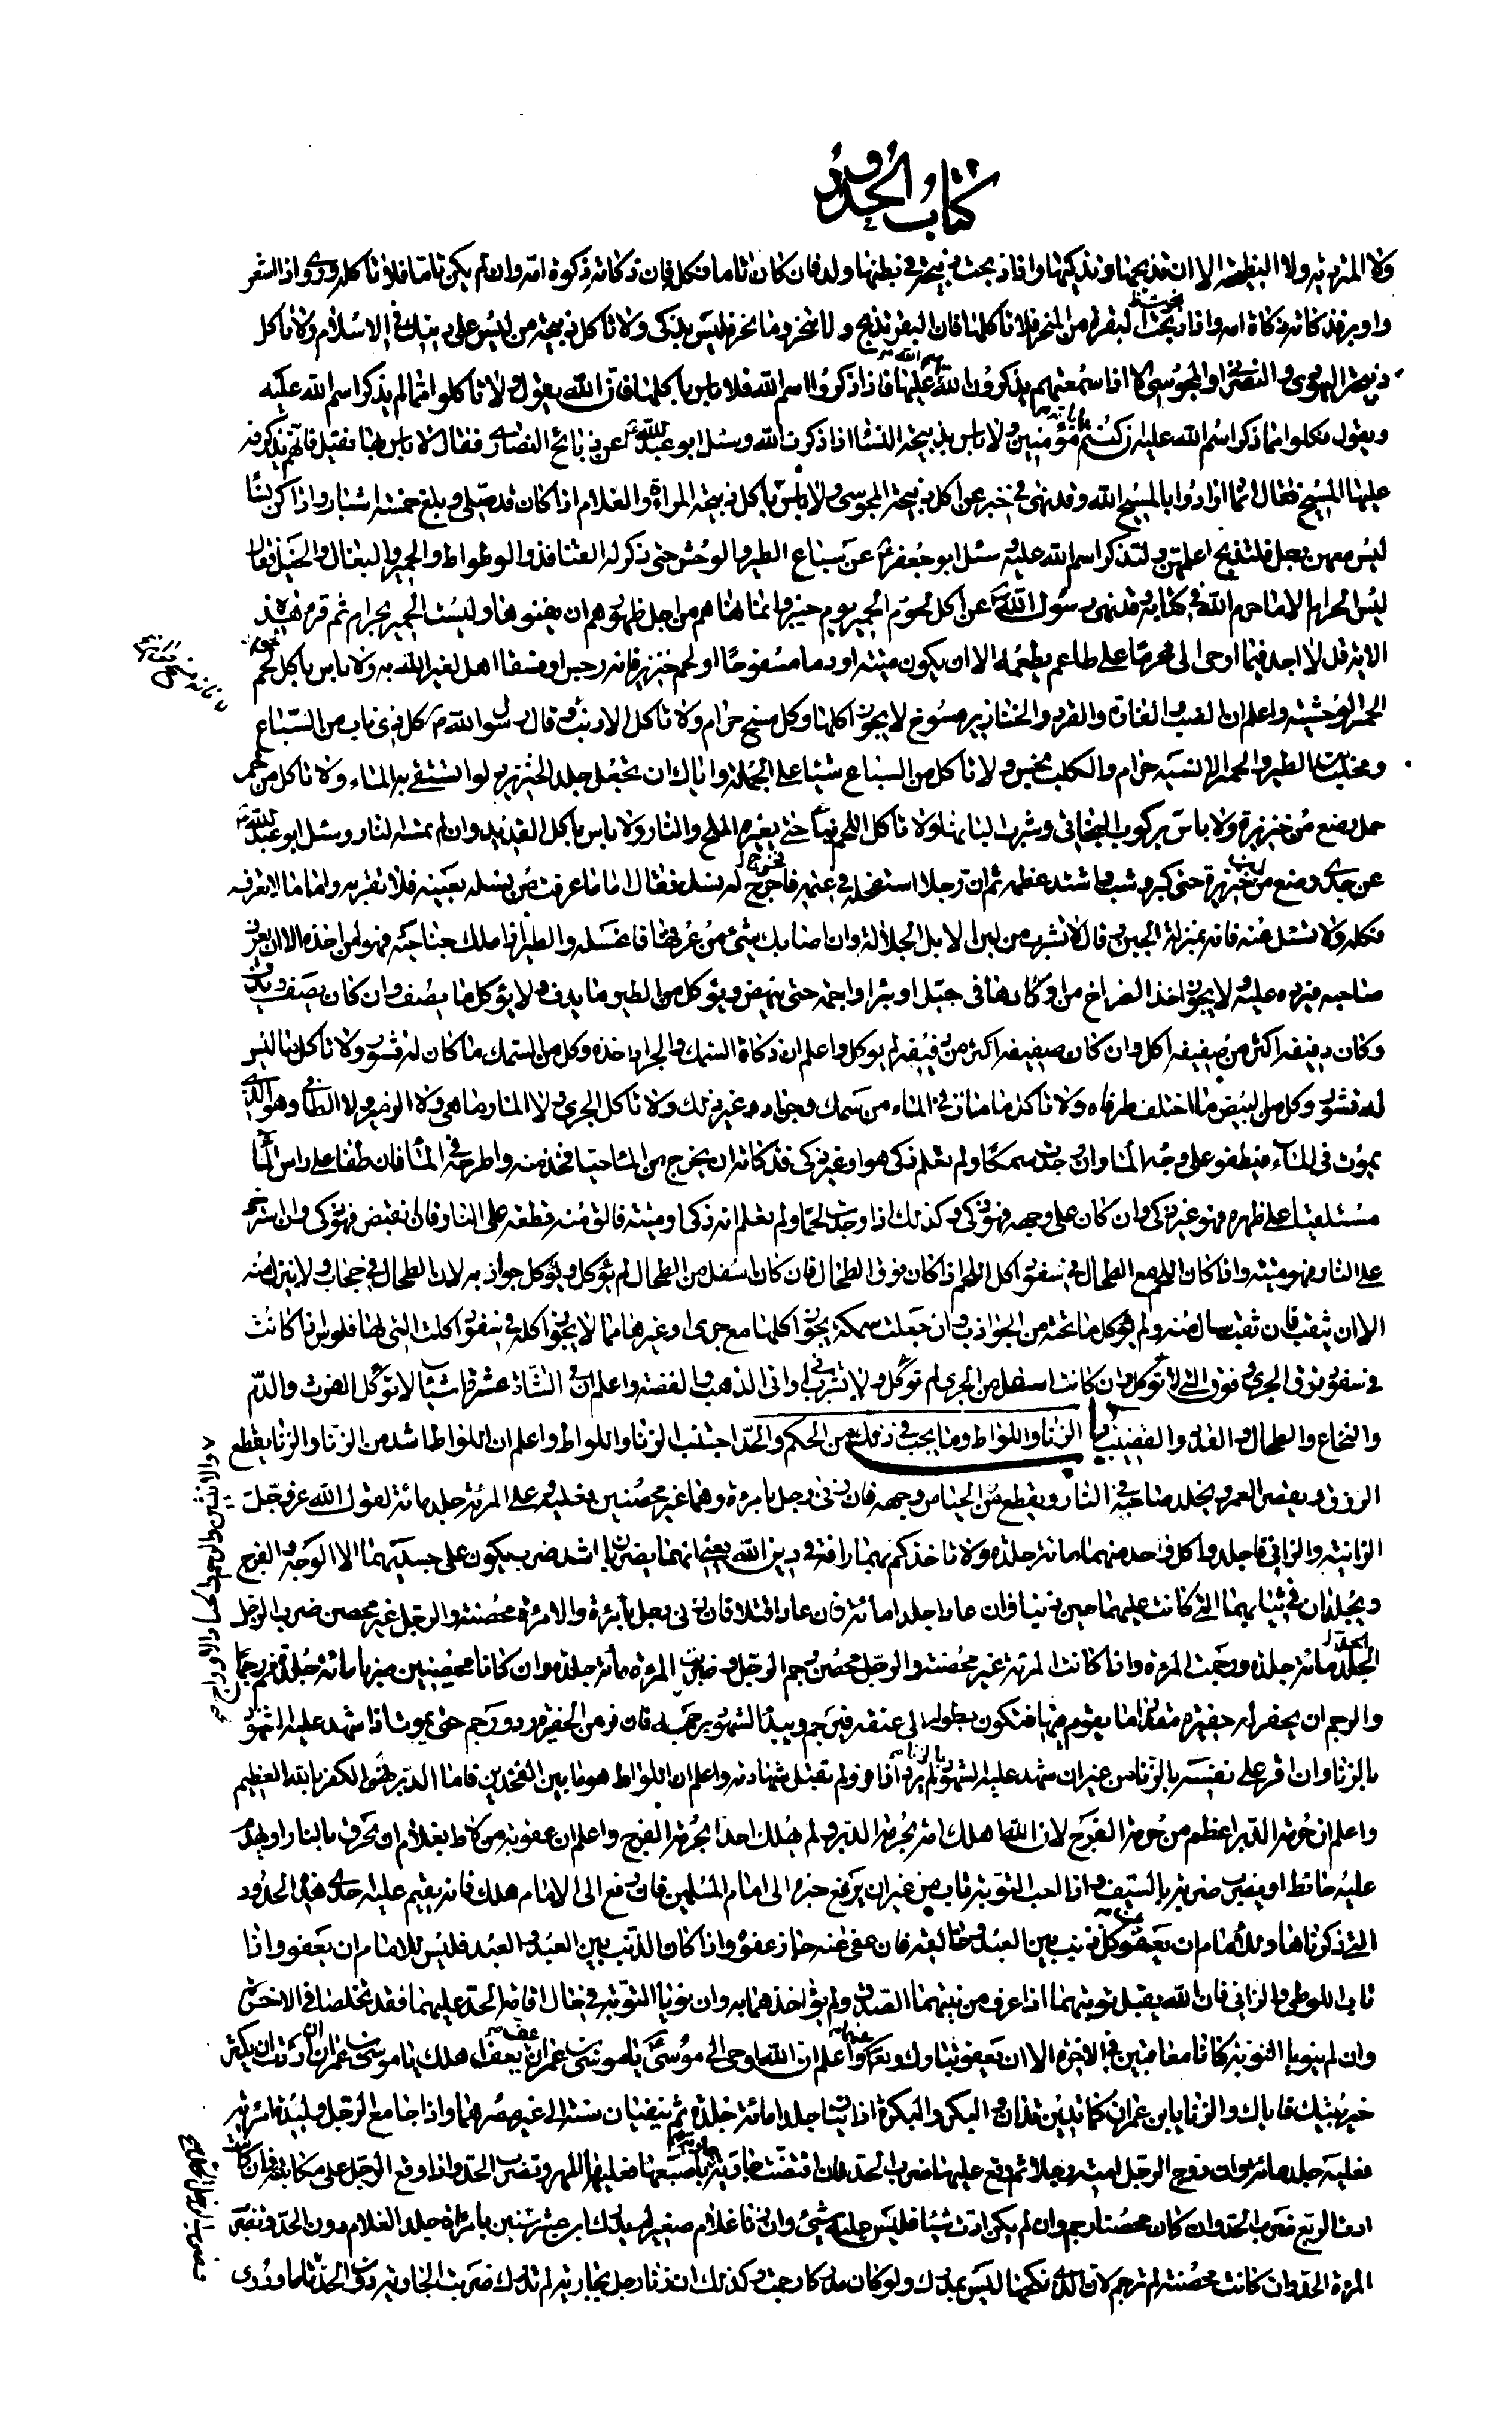 كتاب الحدود
ولا المتردية ولا النطيحة الا ان تذبحها وتذكيها واذا ذبحت ذبيحة في بطنها ولد فان كان تاما فكل فان ذكاته ذكوة امه وان لم يكن تاما فلا تأكله وروى اذا اشعر
واوبر فذكاته ذكاة امه واذا ذبحت البقر من المنحر فلا تأكلها فان البقر تذبح ولا تنحر وما نحر فليس بذكى ولا تأكل ذبيحة من ليس على دينك في الاسلام ولا تأكل
ذبيحة اليهودى والنصرانى والمجوسى الا اذا سمعتهم يذكرون الله عليها فاذا ذكروا اسم الله فلا بأس بأكلها فان الله يقول ولا تأكلوا مما لم يذكر اسم الله عليه
ويقول فكلوا مما ذكر اسم الله عليه ان كنتم مؤمنين ولا باس بذبيحة النسا اذا ذكرت الله وسئل ابو عبد الله عن ذبائح النصارى فقال لا باس بها فقيل فانهم يذكرون
عليها المسيح فقال انما ارادوا بالمسيح الله وقد نهى في خبر عن اكل ذبيحة المجوسى ولا باس باكل ذبيحة المراة والغلام اذا كان قد صلى وبلغ خمسة اشبار واذا كن نسا
ليس معهن رجل فلتذبح اعلمهن ولتذكر اسم الله عليه وسئل ابو جعفر عن سباع الطير والوحش حتى ذكر له القنافذ والوطواط والحمير والبغال والخيل فقال
ليس الحرام الا ما حرم الله في كتابه وقد نهى رسول الله عن اكل لحوم الحمير يوم خيبر وانما نهاهم من اجل ظهورهم ان يفنوها وليست الحمير بحرام ثم قرء هذه
الاية قل لا اجد فيما اوحى الى محرما على طاعم يطعمه الا ان يكون ميتة او دما مسفوحا او لحم خنزير فانه رجس او فسقا اهل لغير الله به ولا باس باكل لحم
الحمر الوحشية واعلم ان الضب والفارة والقردة والخنازير مسوخ لا يجوز اكلها وكل مسخ حرام ولا تأكل الارنب وقال رسول الله كل ذى ناب من السباع
ومخلب من الطير والحمر الانسية حرام والكلب نجس ولا تأكل من السباع شيئا على الجملة واياك ان تجعل جلد الخنزير دلوا تستقى به الماء ولا تأكل من لحم
حمل رضع من خنزيرة ولا باس بركوب البخاتى وشرب البانها ولا تأكل اللحم نيا حتى يغيره الملح والنار ولا باس باكل القديد وان لم تمسه النار وسئل ابو عبد الله
عن جدى رضع من خنزيرة حتى كبر وشب واشتد عظمه ثم ان رجلا استفحله في غنمه فاخرج له نسل فقال اما ما عرفت من نسله بعينه فلا تقربه واما ما لا تعرفه
فكله ولا تسئل عنه فانه بمنزلة الجبن وقال لا تشرب من لبن الابل الجلالة وان اصابك شئ من عرقها فاغسله والطير اذا ملك جناحيه فهو لمن اخذه الا ان يعرف
صاحبه فيرده عليه ولا يجوز اخذ الفراخ من اوكارها في جبل او بئر او اجمة حتى ينهض ويؤكل من الطير ما يدف ولا يؤكل ما يصف وان كان يصف ويدف
وكان دفيفه اكثر من صفيفه اكل وان كان صفيفه اكثر من دفيفه لم يوكل واعلم ان ذكاة السمك والجراد اخذه وكل من السمك ما كان له قشور ولا تاكل ما ليس
له قشور وكل من البيض ما اختلف طرفاه ولا تأكل ما مات في الماء من سمك وجراد وغير ذلك ولا تأكل الجرى ولا المارماهى ولا الزمير ولا الطافى وهو الذى
يموت في الماء فيطفو على وجه الماء وان وجدت سمكا ولم تعلم ذكى هو او غير ذكى فذكاته ان يخرج من الماء حيا فخذ منه واطرحه في الماء فان طفا على راس الماء
مستلقيا على ظهره فهو غير ذكى وان كان على وجهه فهو ذكى وكذلك اذا وجدت لحما ولم تعلم انه ذكى او ميتة فالق منه قطعة على النار فان تقبض فهو ذكى وان استرخى
على النار فهو ميتة واذا كان اللحم مع الطحال في سفود اكل اللحم اذا كان فوق الطحال فان كان اسفل من الطحال لم يؤكل ويؤكل جوذابه لان الطحال في حجاب ولا ينزل منه
الا ان يثقب فان ثقب سال منه ولم يؤكل ما تحته من الجوذاب وان جعلت سمكة يجوز اكلها مع جرى او غيرها مما لا يجوز اكله في سفود اكلت التى لها فلوس اذا كانت
في سفود فوق الجرى وفوق التى لا تؤكل وان كانت اسفل من الجرى لم تؤكل ولا تشرب في اوانى الذهب والفضة واعلم ان في الشاة عشرة اشياء لا تؤكل الفرث والدم
والنخاع والطحال والغدد والقضيب باب الزنا واللواط وما يجب في ذلك من الحكم والحد اجتنب الزنا واللواط واعلم ان اللواط اشد من الزنا والزنا يقطع
الرزق ويقصر العمر ويخلد صاحبه في النار ويقطع من الحياء من وجهه فان زنى رجل بامرءة وهما غير محصنين فعليه وعلى المرئة جلد مائة لقول الله عز وجل
الزانية والزانى فاجلدوا كل واحد منهما مائة جلدة ولا تأخذكم بهما رافة في دين الله يعنى انهما يضربان اشد ضرب يكون على جسديهما الا الوجه والفرج
ويجلدان في ثيابهما التى كانت عليهما حين زنيا فان عادا جلدا مائة فان عادا قتلا فان زنى رجل بامرئة والامرئة محصنة والرجل غير محصن ضرب الرجل
الحد مائة جلدة ورجمت المرءة واذا كانت المرئة غير محصنة والرجل محصن رجم الرجل وضربت المرءة مائة جلدة وان كانا محصنين ضربا مائة جلدة ثم رجما
والرجم ان يحفر له حفيرة مقدار ما يقوم فيها فتكون بطوله الى عنقه فيرجم ويبدا الشهود برجمه فان فر من الحفيرة رد ورجم حتى يموت اذا شهد عليه الشهود
بالزنا وان اقر على نفسه بالزنا من غير ان شهد عليه الشهود لم يرد اذا فر ولم تقبل شهادته واعلم ان اللواط هو ما بين الفخذين فاما الدبر فهو الكفر بالله العظيم
واعلم ان حرمة الدبر اعظم من حرمة الفرج لان الله اهلك امة بحرمة الدبر ولم يهلك احدا بحرمة الفرج واعلم ان عقوبة من لاط بغلام ان يحرق بالنار او يهدم
عليه حائط او يضرب ضربة بالسيف واذا احب التوبة تاب من غير ان يرفع خبره الى امام المسلمين فان رفع الى الامام هلك فانه يقيم عليه احدى هذه الحدود
التى ذكرناها وللامام ان يعفو عن كل ذنب بين العبد وخالقه فان عفى عنه جاز عفوه واذا كان الذنب بين العبد والعبد فليس للامام ان يعفو واذا
تاب اللوطى والزانى فان الله يقبل توبتهما اذا عرف من نيتهما الصدق ولم يؤاخذهما به وان نويا التوبة في حال اقامة الحد عليهما فقد تخلصا في الاخرة
وان لم ينويا التوبة كانا معاقبين في الاخرة الا ان يعفو تبارك وتعالى عنهما واعلم ان الله اوحى الى موسى يا موسى بن عمران عف يعف اهلك يا موسى بن عمران ان اردت ان يكثر
خير بيتك فاياك والزنا يابن عمران كما تدين تدان والبكر والبكرة اذا زنيا جلدا مائة جلدة ثم ينفيان سنة الى غير مصرهما واذا جامع الرجل وليدة امرئته
فعليه جلد مائة وان زوج الرجل امته رجلا ثم وقع عليها ضرب الحد فان افتضت جارية جارية باصبعها فعليها المهر وتضرب الحد واذا وقع الرجل على مكاتبته فان كانت
ادت الربع ضرب الحد وان كان محصنا رجم وان لم يكن ادت شيئا فليس عليه شئ وان زنا غلام صغير لم يدرك ابن عشر سنين بامراة جلد الغلام دون الحد وتضرب
المرءة الحد وان كانت محصنة لم ترجم لان الذى نكحها ليس بمدرك ولو كان مدركا رجمت وكذلك ان زنا رجل بجارية لم تدرك ضربت الجارية دون الحد تاما وروى
والانثيين والرحم والحيا والاوداج